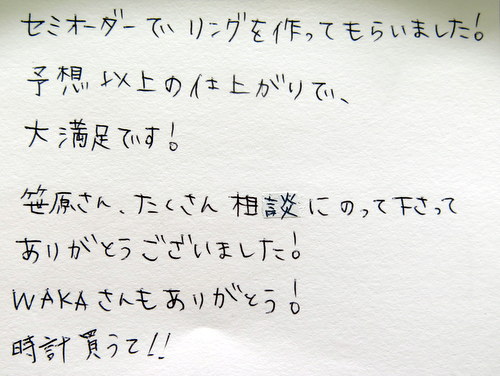 セミオーダーで、リングを作ってもらいました！
予想以上の仕上がりで、
大満足です！
笹原さん、たくさん相談にのって下さって
ありがとうございました！
WAKAさんもありがとう！
時計買うて!!